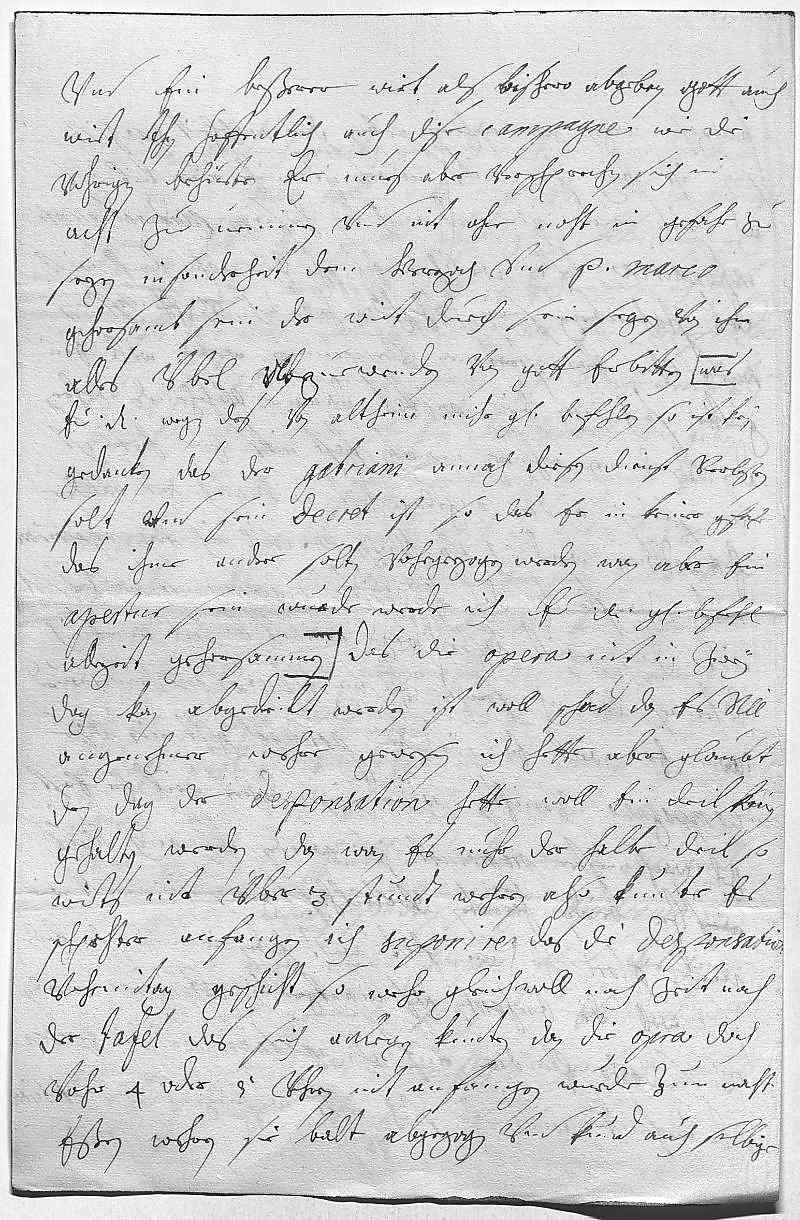 Und Ein besserer wirt als bishero abgeben gott auch
wirt Ihn hoffentlich auch dise campagne wie die
Vohrigen behüten Er mus aber versprechen sich in
acht zu nemmen Und nit ohne noht in gefahr zu
sezen insonderheit dem Herzog Und p. marco
gehorsamb sein der wirt durch sein segen von ihm
alles Übel abzuwenden von gott Erbitten was
Eu: d: wegen des von altheim mihr gl: befehlen so ist kein
gedanken das der gabriani annoch diesen dienst verlassen
solt und sein decret ist so das Er in keiner gefahr
das ihme andere solten Vohrgezogen werden wan aber Ein
apertur sein wurde werde ich Eu: d: gl: befehl
allezeit gehorsammen Das die opera nit in zwey
dag kan abgedeilt werden ist woll schad den Es Vill
angenehmer wehre gewesen ich hette aber glaubt
den dag der desponsation hette woll Ein deil können
gehalten werden den wan Es nuhr der halbe deil so
wirts nit Über 3 stundt wehren also kunte Es
spehter anfangen ich suponire das die desponsation
Vohrmitag geschicht so wehr gleichwoll noch Zeit nach
der tafel das sich anlegen kunten den die opera doch
Vohr 4 oder 5 Uhren nit anfangen wurde zum nacht
Essen wehren sie balt abgezogen Und kund auch selbige